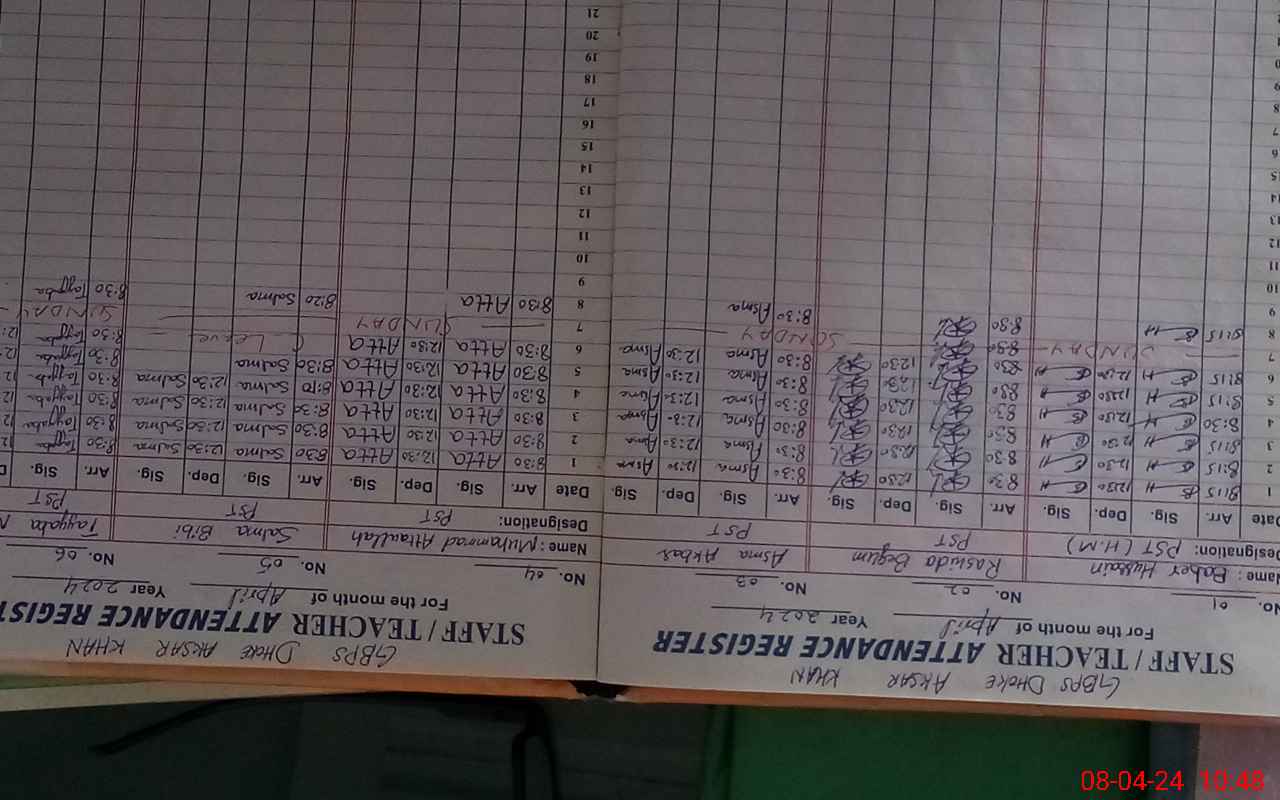 GBPS DHOKE AKSAR KHAN
STAFF / TEACHER ATTENDANCE REGISTER
For the month of April Year 2024
No. 01 No. 02 No. 03
Name: Baber Hussain Rashida Begum Asma Akbar
Designation: PST (H.M) PST PST
Date Arr. Sig. Dep. Sig. Arr. Sig. Dep. Sig. Arr. Sig. Dep. Sig.
1 8:15 12:30 8:30 12:30 8:30 Asma 12:30 Asma
2 8:15 12:30 8:30 12:30 8:30 Asma 12:30 Asma
3 8:15 12:30 8:30 12:30 8:30 Asma 12:30 Asma
4 8:30 12:30 8:30 12:30 8:30 Asma 12:30 Asma
5 8:15 12:30 8:30 12:30 8:30 Asma 12:30 Asma
6 8:15 12:30 8:30 12:30 8:30 Asma 12:30 Asma
7 SUNDAY SUNDAY
8 8:15 8:30 8:30 Asma
9
10
11
12
13
14
15
GBPS DHOKE AKSAR KHAN
STAFF / TEACHER ATTENDANCE REGIST
For the month of April Year 2024
No. 04 No. 05 No. 06
Name: Muhammad Attaullah Salma Bibi Tayyaba
Designation: PST PST PST
Date Arr. Sig. Dep. Sig. Arr. Sig. Dep. Sig. Arr. Sig. D
1 8:30 Atta 12:30 Atta 8:30 Salma 12:30 Salma 8:30 Tayyaba 12:
2 8:30 Atta 12:30 Atta 8:30 Salma 12:30 Salma 8:30 Tayyaba 12
3 8:30 Atta 12:30 Atta 8:30 Salma 12:30 Salma 8:30 Tayyaba 12
4 8:30 Atta 12:30 Atta 8:10 Salma 12:30 Salma 8:30 Tayyaba 12
5 8:30 Atta 12:30 Atta 8:30 Salma 8:30 Tayyaba 12
6 8:30 Atta 12:30 Atta C Leave 8:30 Tayyaba 12:
7 SUNDAY SUNDAY
8 8:30 Atta 8:20 Salma 8:30 Tayyaba
9
10
11
12
13
14
15
16
17
18
19
20
21
08-04-24 10:48